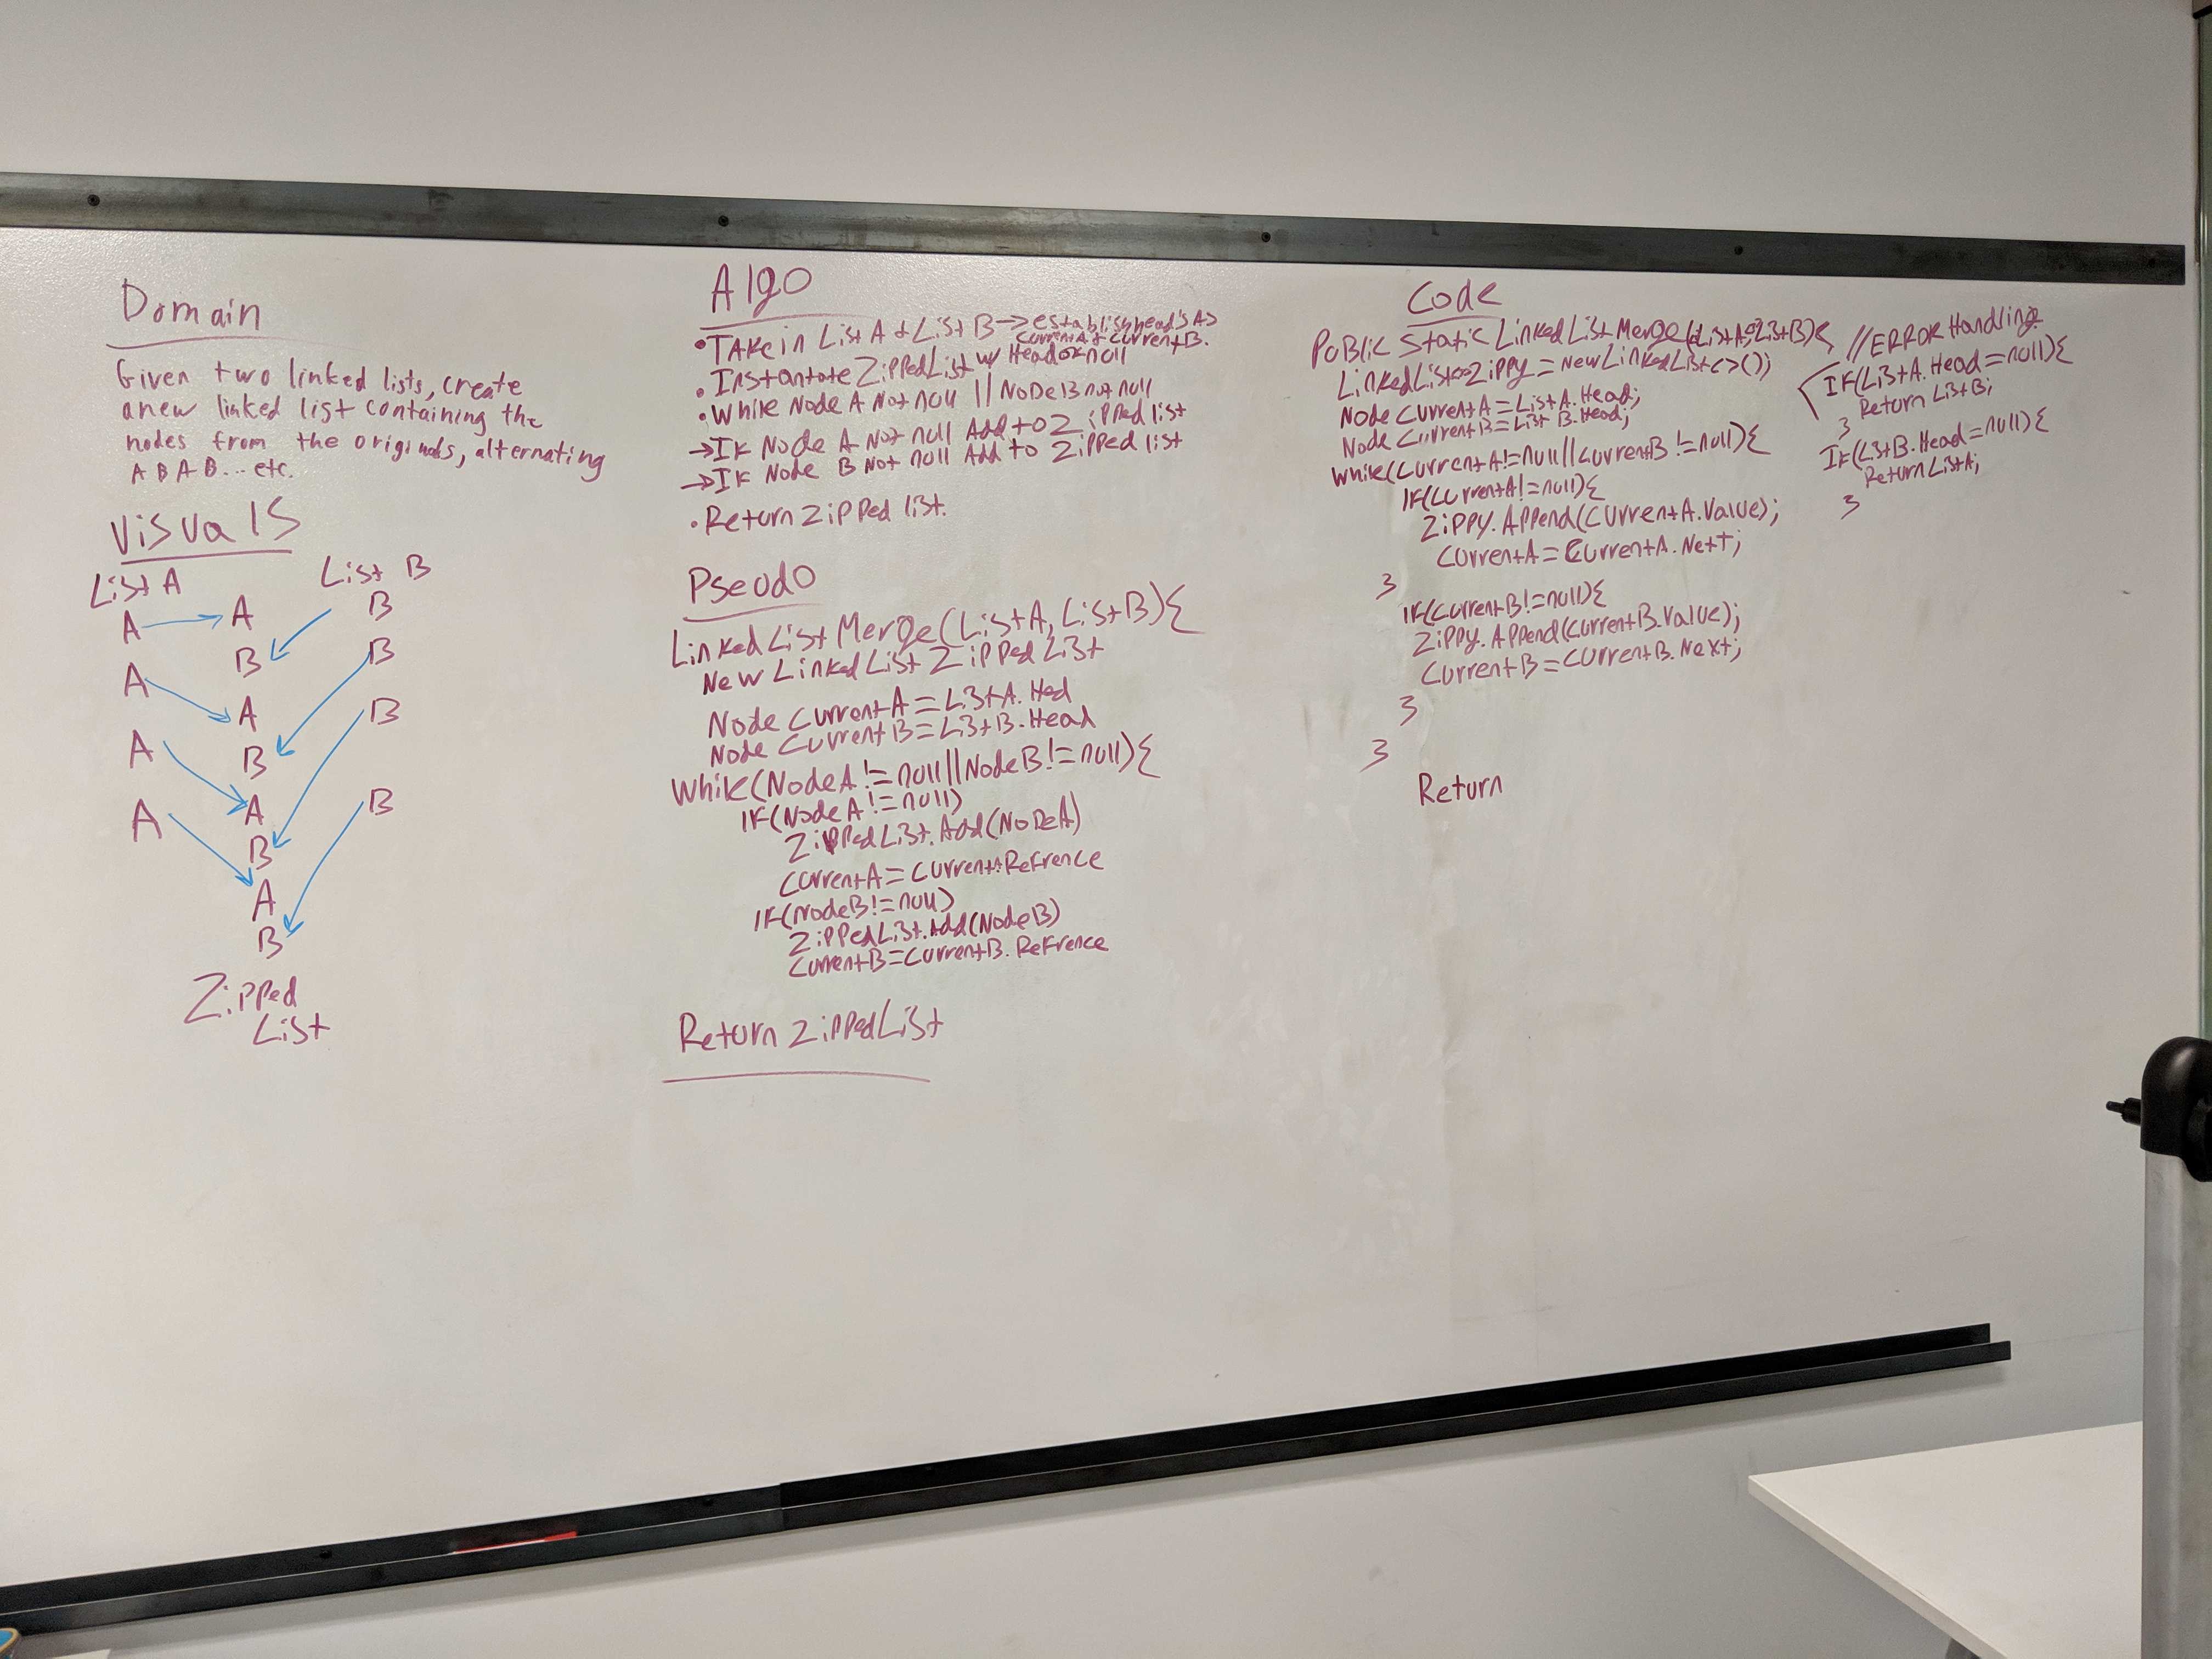 Domain
Given two linked lists, create
a new linked list containing the
nodes from the originals, alternating
A B A B ... etc.
Visuals
List A
List B
A A B
B
A B
A
B B
A
A
B B
A
A
B
Zipped
List
Algo
• Take in List A & List B → establish heads As
Current A & Current B.
• Instantate Zipped List w/ Head of null
• While Node A Not null || Node B not null
→ If Node A Not null Add to Zipped list
→ If Node B Not null Add to Zipped list
• Return Zipped list.
Pseudo
Linked List Merge(ListA, ListB){
New Linked List Zipped List
Node CurrentA = ListA.Hed
Node CurrentB = ListB.Head
While(NodeA != null || NodeB != null){
If(NodeA != null)
ZippedList.Add(NodeA)
CurrentA = CurrentA.Refrence
If(NodeB != null)
ZippedList.Add(NodeB)
CurrentB = CurrentB.Refrence
Return ZippedList
Code
Public Static Linked List Merge( ListA, ListB){
Linked List Zippy = New Linked List<>();
Node CurrentA = ListA.Head;
Node CurrentB = List B.Head;
While(CurrentA != null || CurrentB != null){
If(CurrentA != null){
Zippy.Append(CurrentA.Value);
CurrentA = CurrentA.Next;
}
If(CurrentB != null){
Zippy.Append(CurrentB.Value);
CurrentB = CurrentB.Next;
}
}
Return
//ERROR Handling
If(ListA.Head = null){
Return ListB;
}
If(ListB.Head = null){
Return ListA;
}